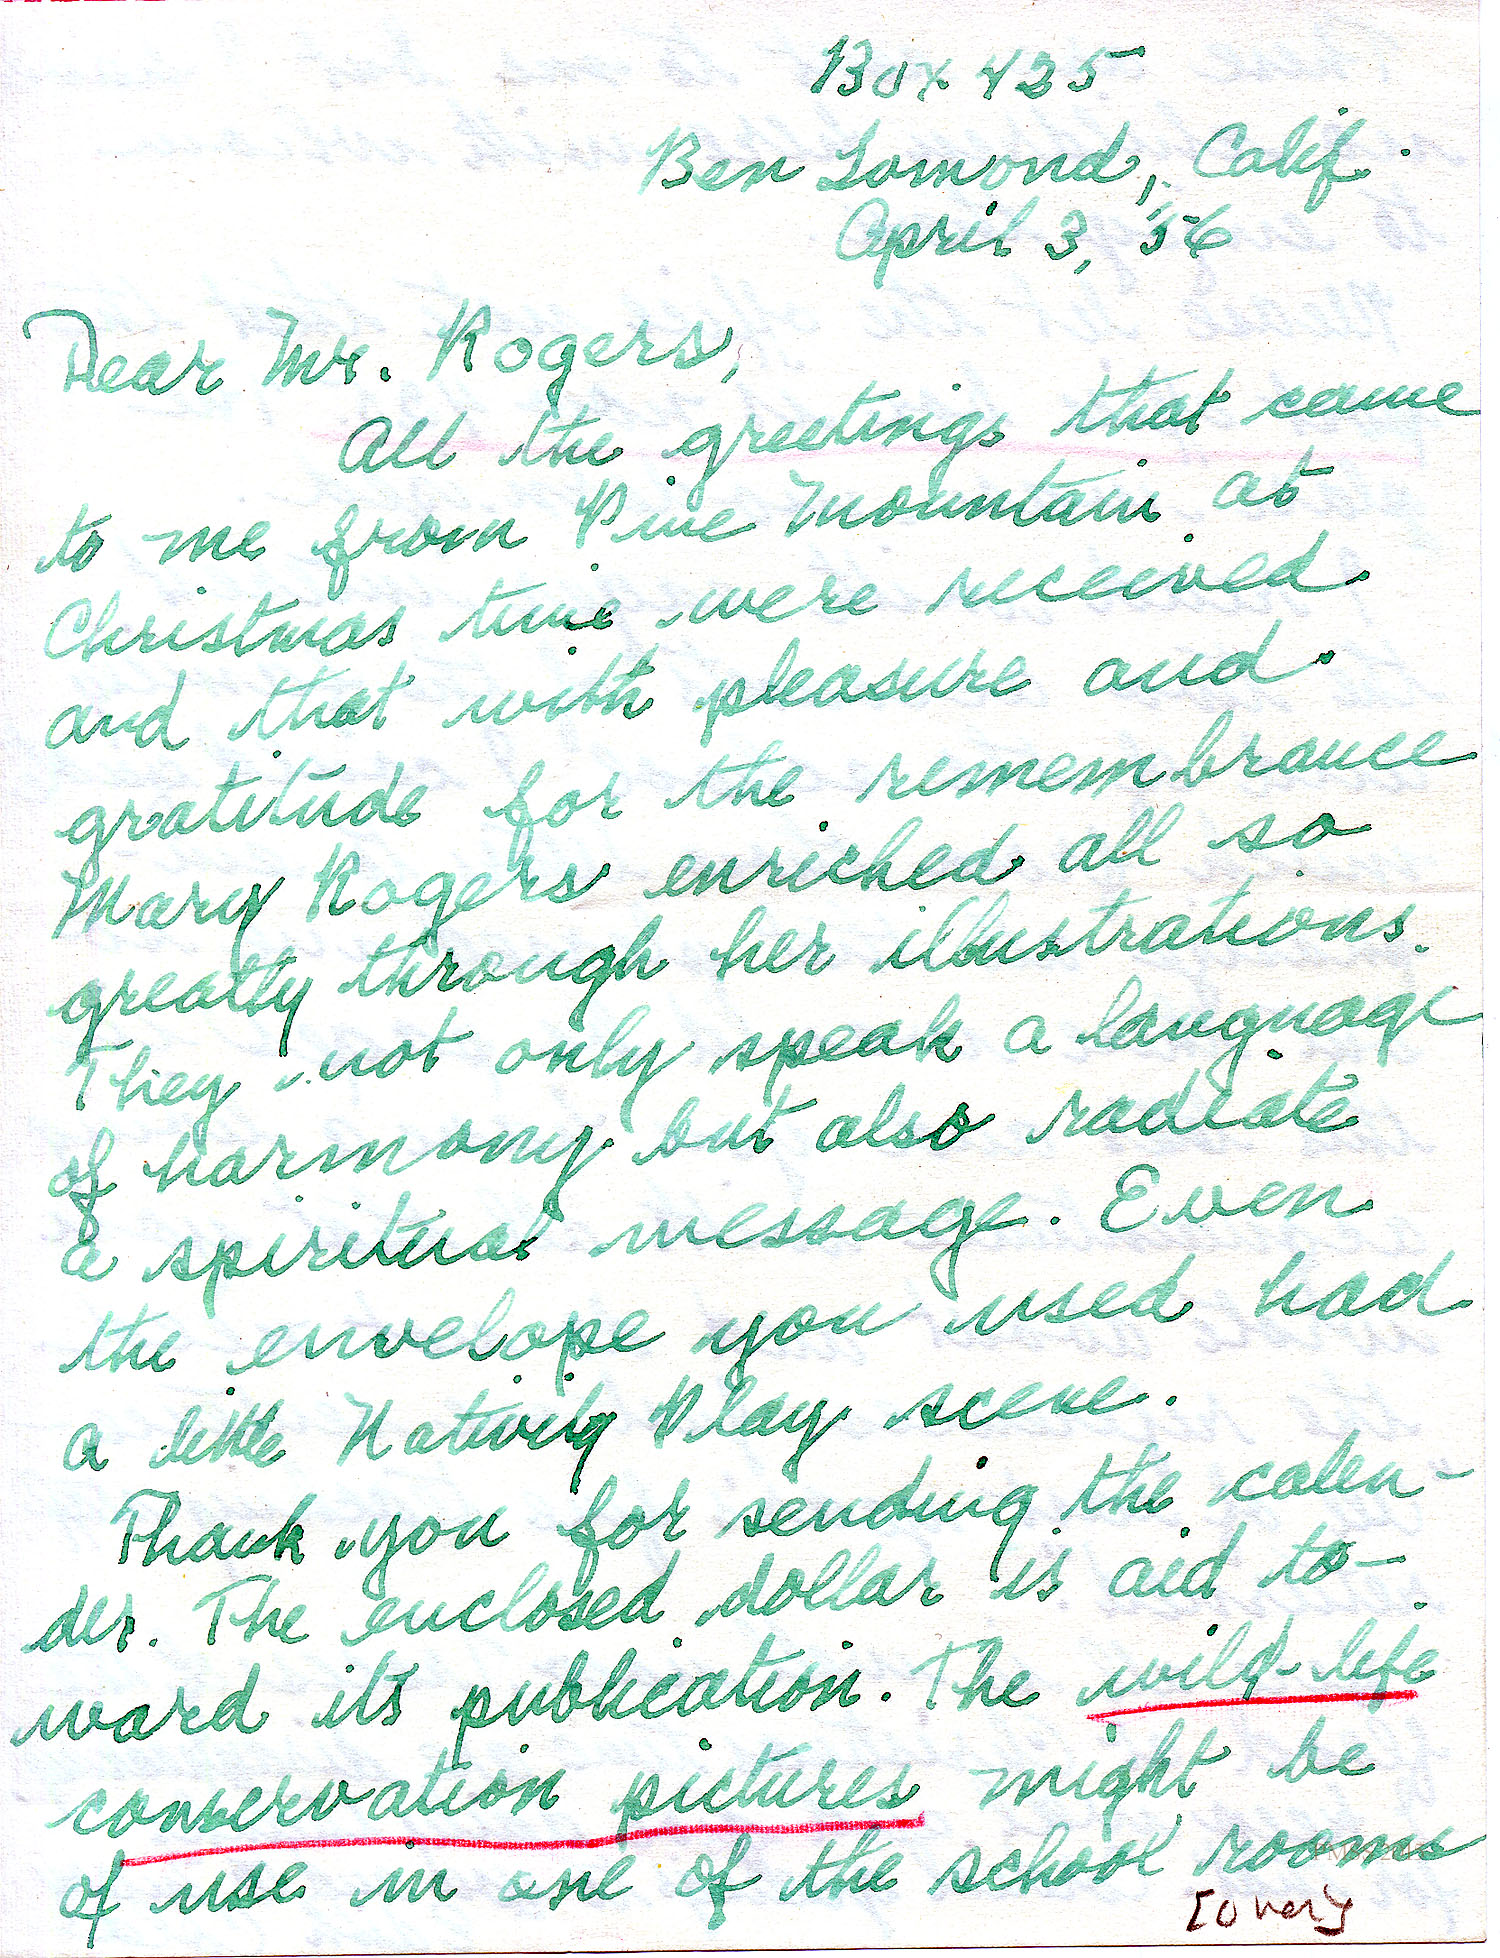 Box 425
Ben Lomond, Calif.
April 3, '56
Dear Mr. Rogers,
All the greetings that came
to me from Pine Mountain at
Christmas time were received
and that with pleasure and
gratitude for the remembrance
Mary Rogers enriched all so
greatly through her illustrations.
They not only speak a language
of harmony but also radiate
a spiritual message. Even
the envelope you used had
a little Nativity Play scene.
Thank you for sending the calen-
der. The enclosed dollar is aid to-
ward its publication. The wild-life
conservation pictures might be
of use in one of the school rooms
[over]